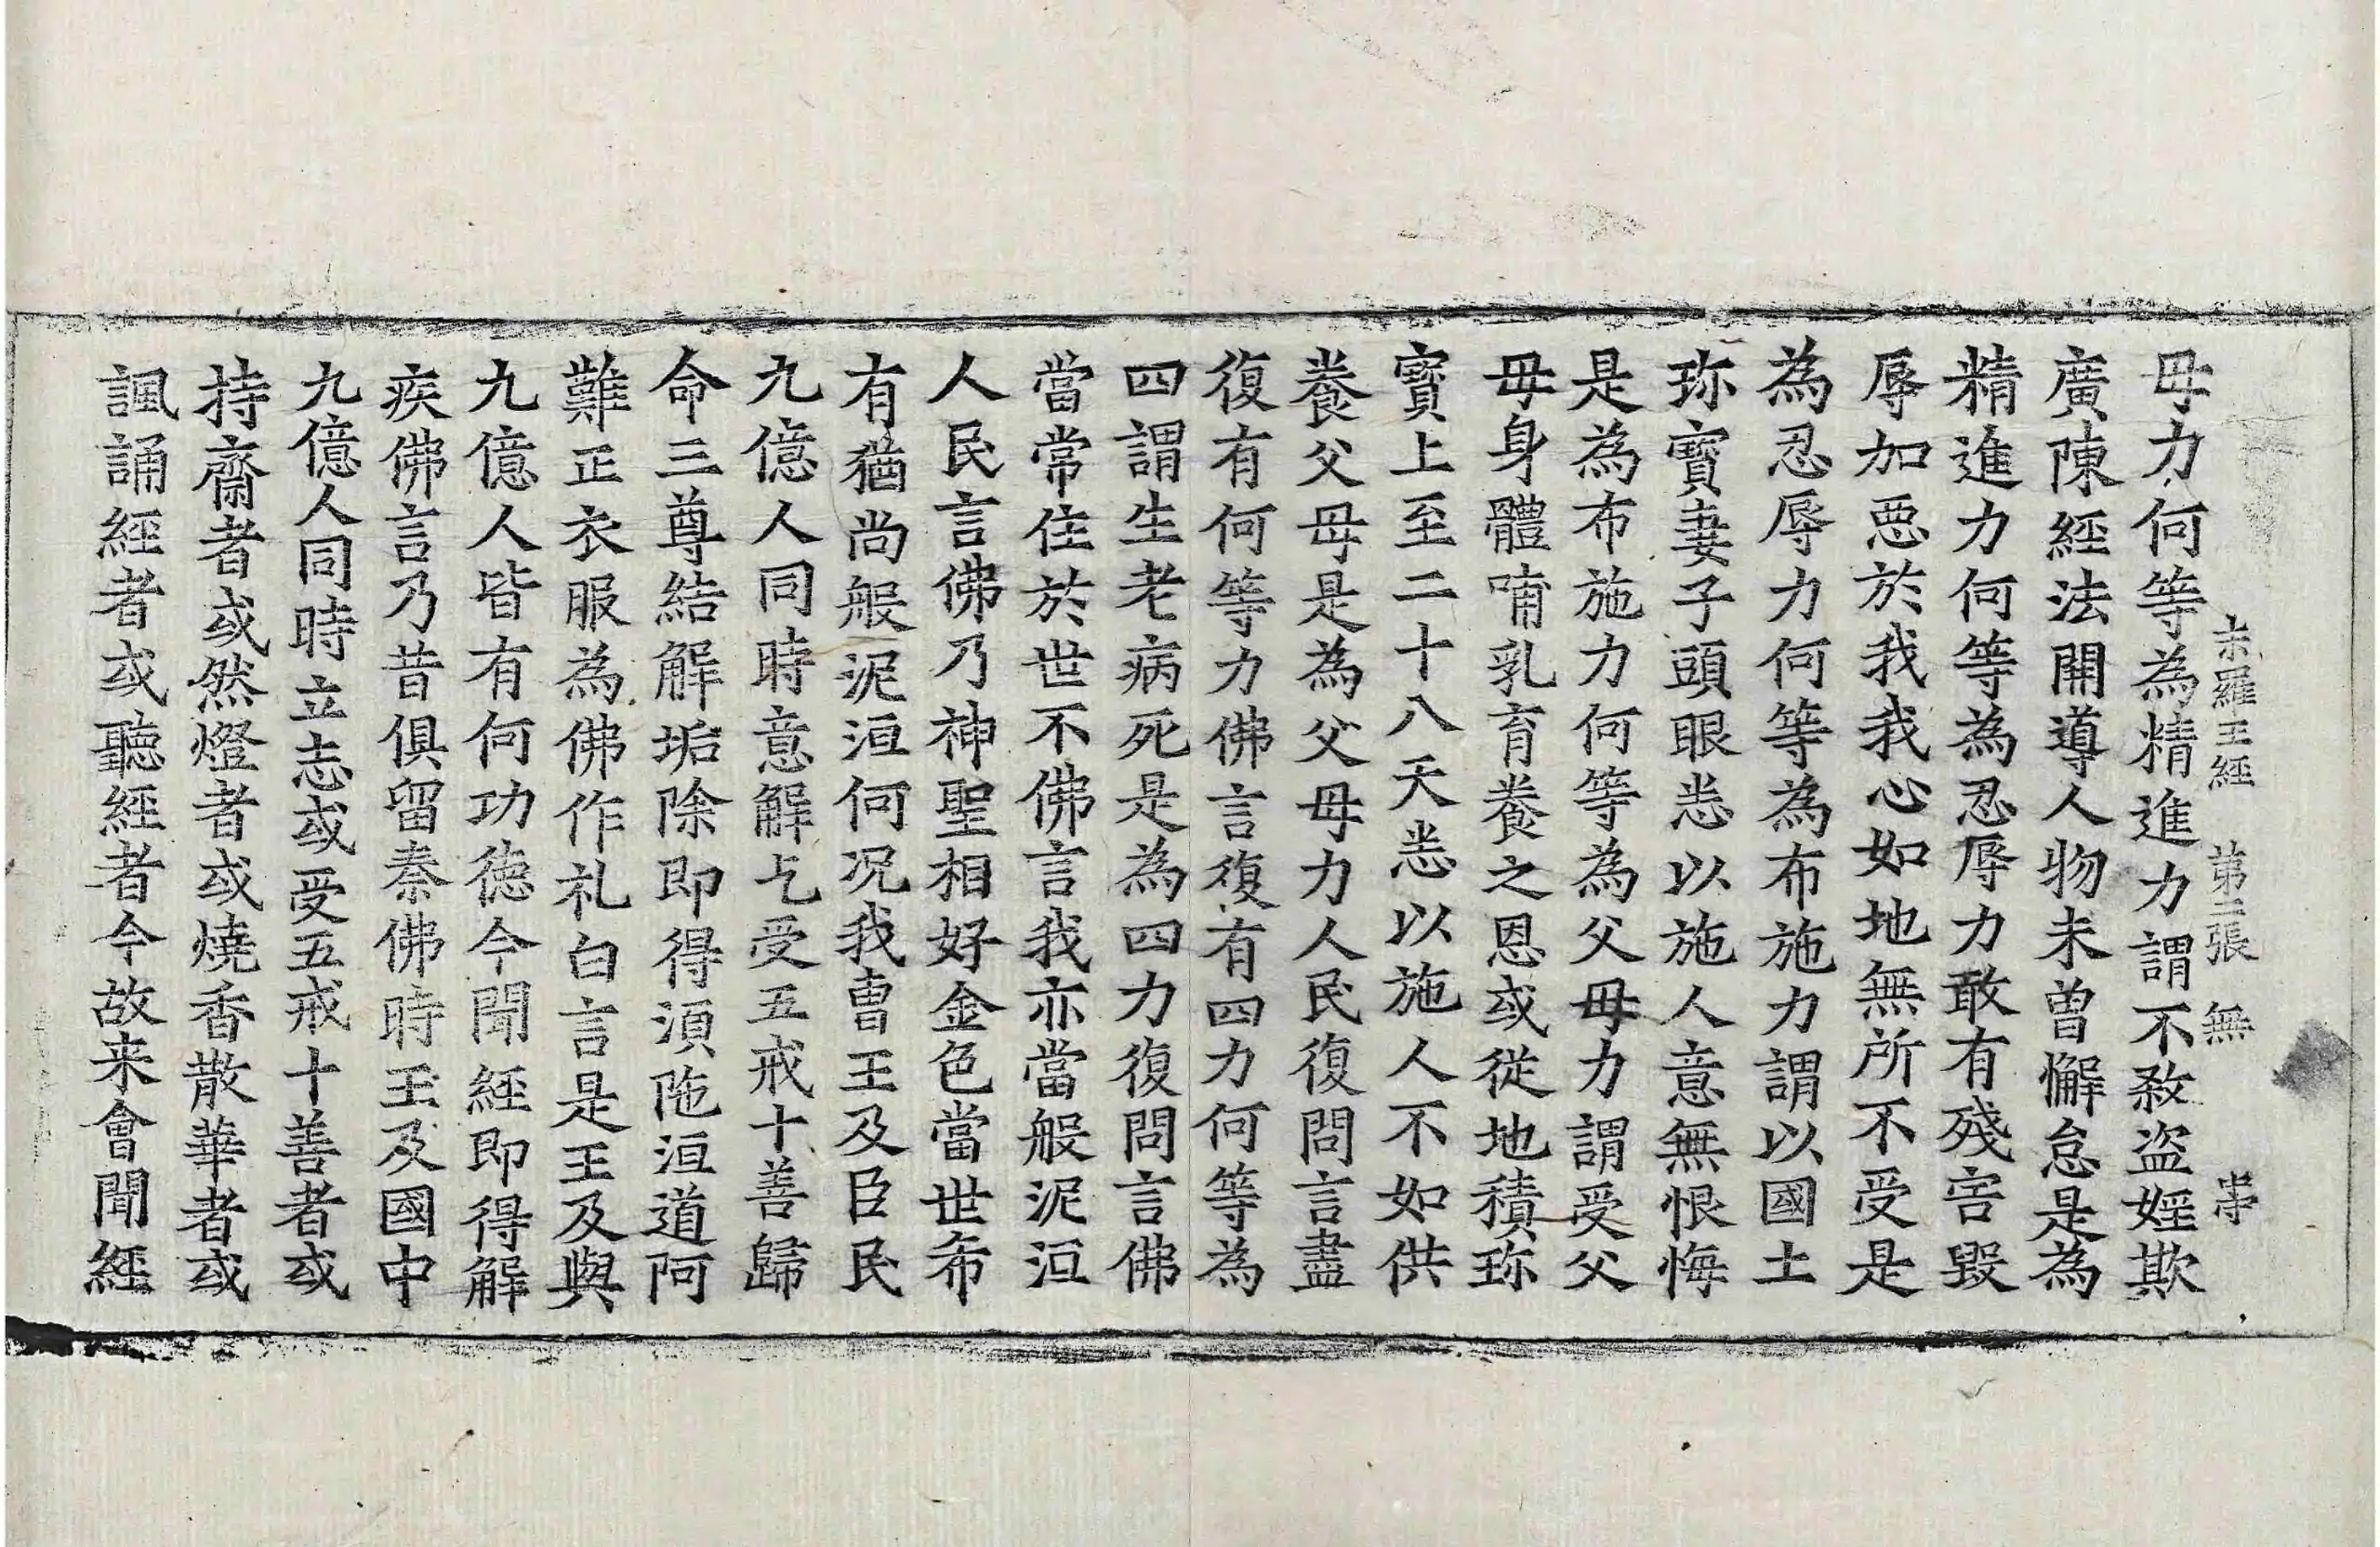 末羅王經 第二張 無
母力何等為精進力謂不殺盗婬欺
廣陳經法開導人物未曽懈怠是為
精進力何等為忍辱力敢有殘害毀
辱加惡於我我心如地無所不受是
為忍辱力何等為布施力謂以國土
珎寶妻子頭眼悉以施人意無恨悔
是為布施力何等為父母力謂受父
母身體哺乳育養之恩或從地積珎
寶上至二十八天悉以施人不如供
養父母是為父母力人民復問言盡
復有何等力佛言復有四力何等為
四謂生老病死是為四力復問言佛
當常住於世不佛言我亦當般泥洹
人民言佛乃神聖相好金色當世希
有猶尚般泥洹何況我曹王及臣民
九億人同時意解乞受五戒十善歸
命三尊結解垢除即得湏陁洹道阿
難正衣服為佛作礼白言是王及與
九億人皆有何功德今聞經即得解
疾佛言乃昔俱留秦佛時王及國中
九億人同時立志或受五戒十善者或
持齋者或然燈者或燒香散華者或
諷誦經者或聽經者今故来會聞經